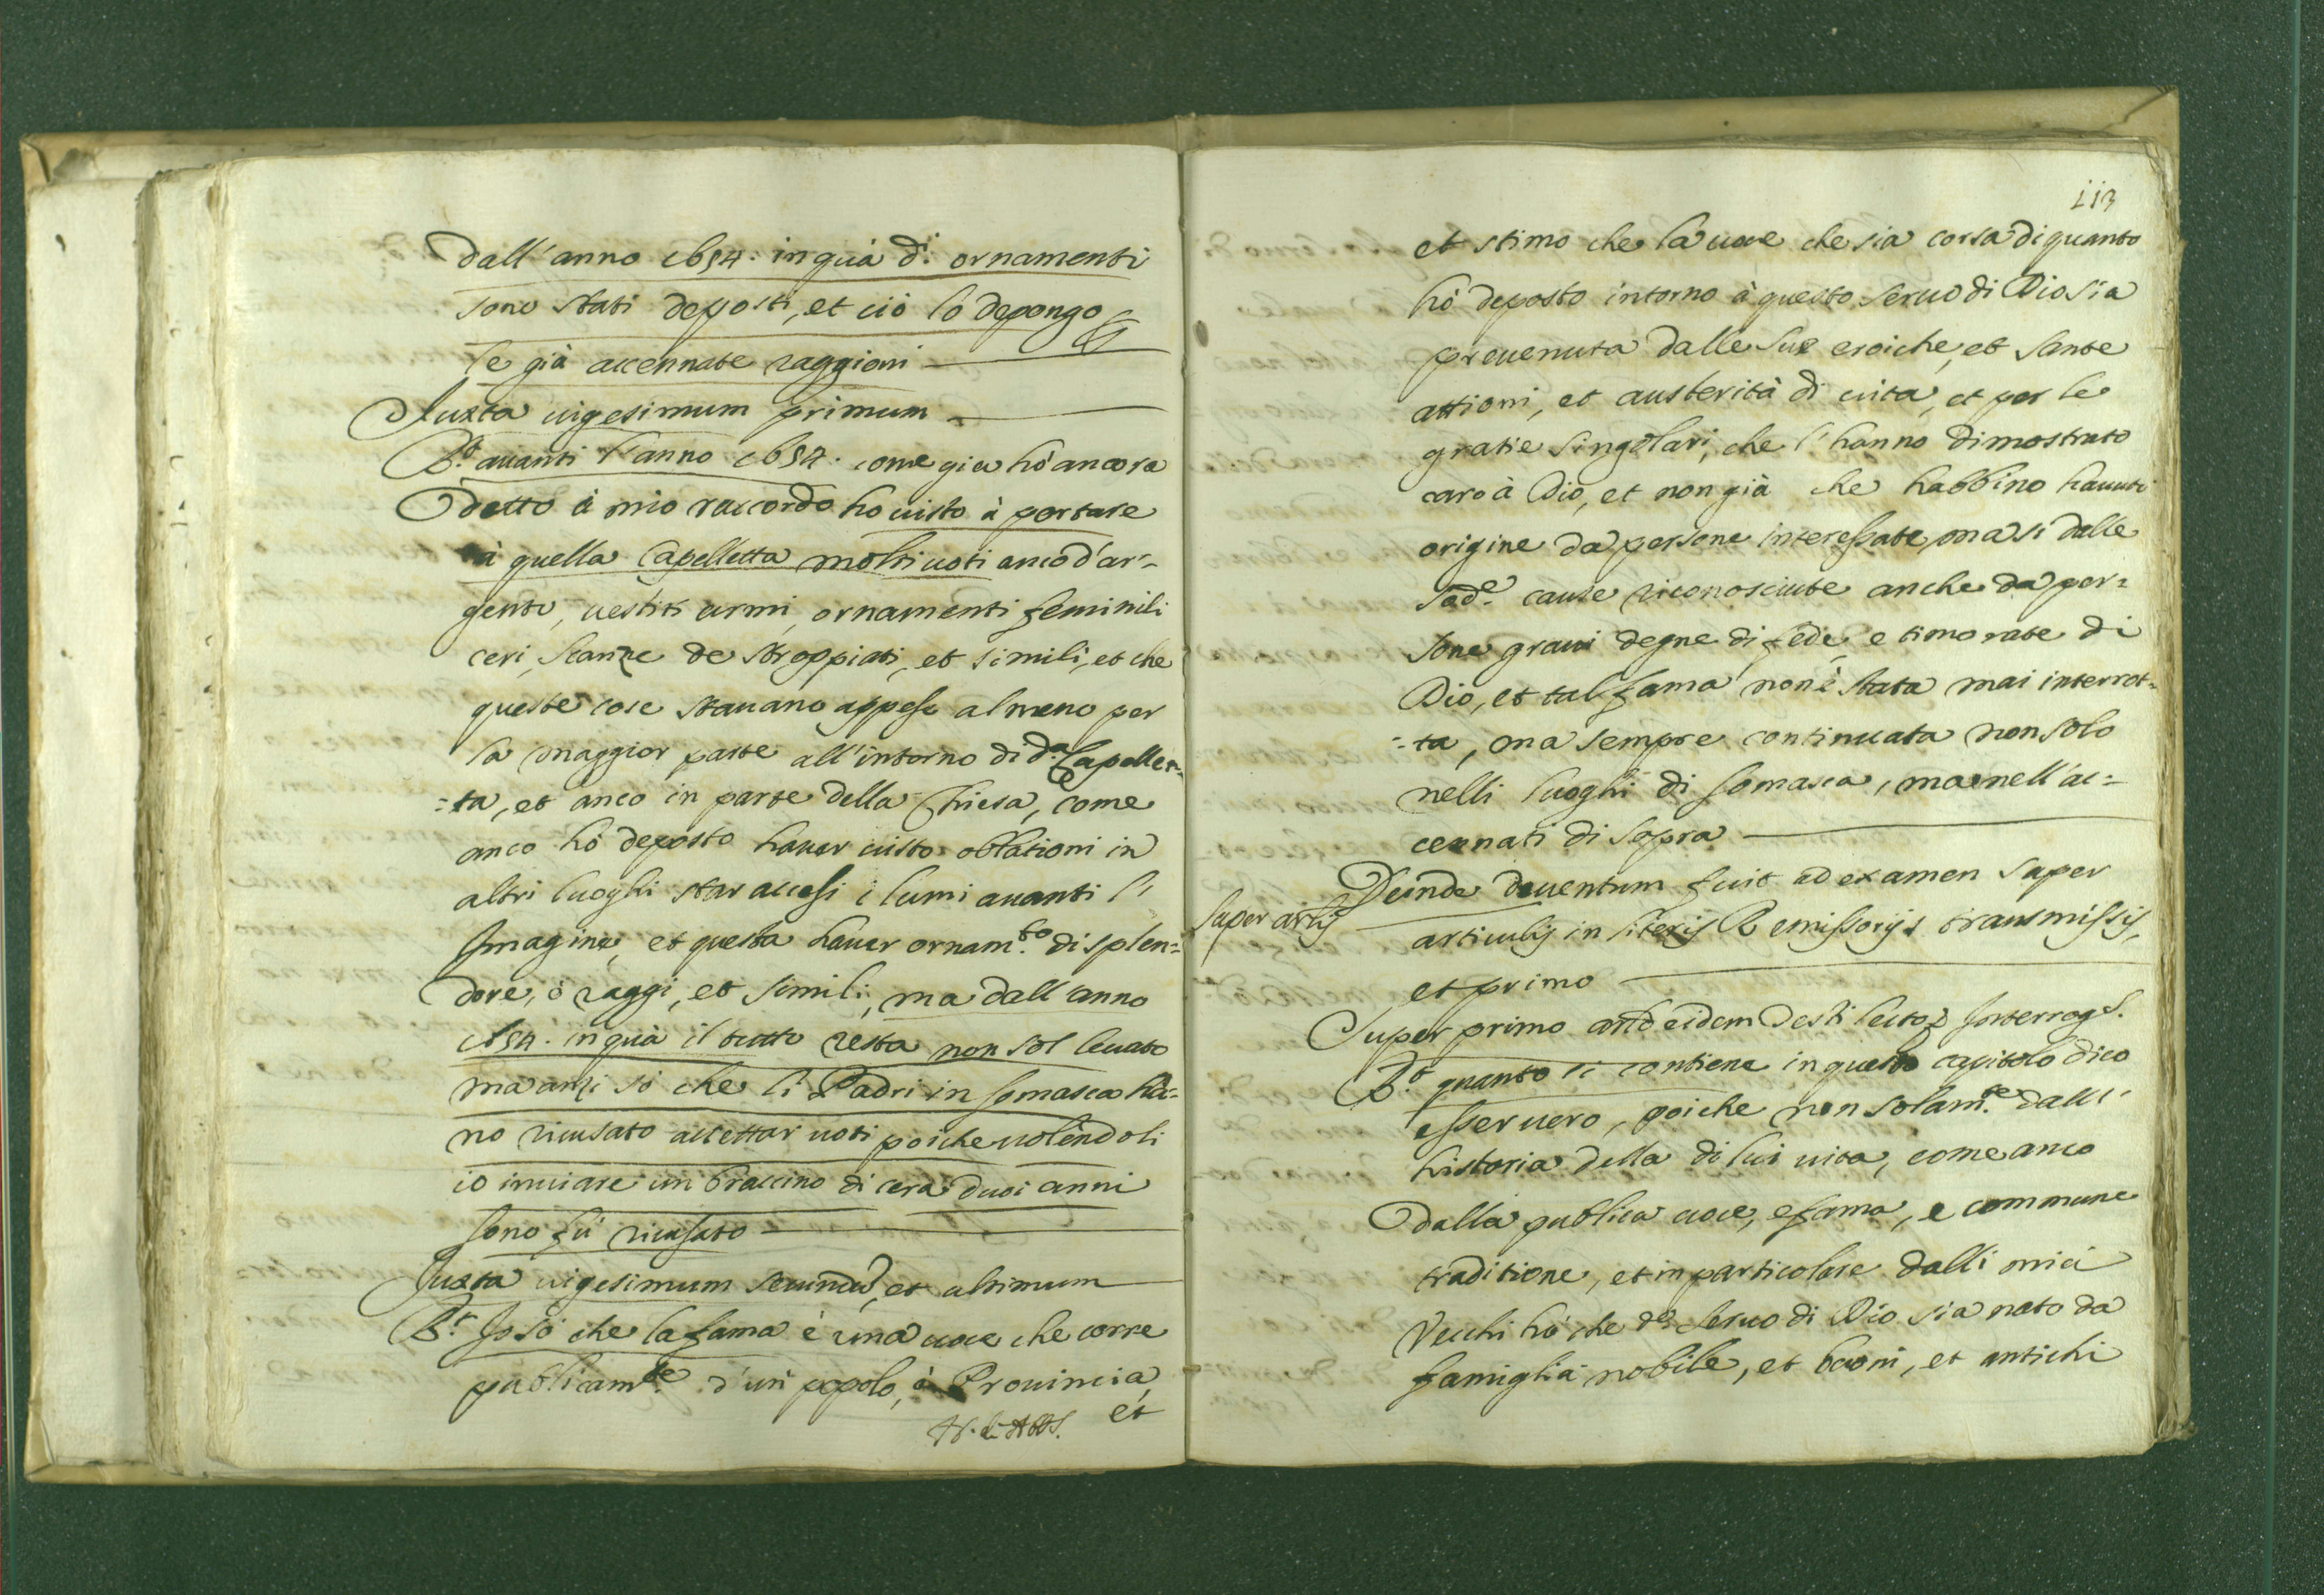 Dall'anno 1654. in quà d.i ornamenti
sono stati deposti, et ciò lo depongo p
le già accennate raggioni
Iuxta vigesimum primum
R.t auanti l'anno 1654. come gia hò ancora
detto à mio raccordo ho uisto à portare
à quella Capelletta molti uoti anco d'ar-
gento, uestiti armi, ornamenti feminili
ceri, scanze de stroppiati, et simili, et che
queste cose stauano appese almeno per
la maggior parte all'intorno di d.a Capellet=
=ta, et anco in parte della Chiesa, come
anco hò deposto hauer uisto oblationi in
altri luoghi star accesi i lumi auanti l'
Imagine, et questa hauer ornam.to di splen=
dore, ò raggi, et simili, ma dall'anno
1654. in quà il tutto resta non sol leuato
ma anzi sò che li Padri in Somasca hà=
no ricusato accettar uoti poiche uolendoli
io inuiare un braccino di cera duoi anni
sono fù ricusato
Iuxta uigesimum secundũ, et ultimum
R.t Io sò che la fama è una uoce che corre
publicam.te d'un popolo, ò Prouincia,
et
113
et stimo che la uoce che sia corsa di quanto
hò deposto intorno à questo seruo di Dio sia
preuenuta dalle sue eroiche, et sante
attioni, et austerità di uita, et per le
gratie singolari, che l'hanno dimostrato
caro à Dio, et non già che habbino hauuti
origine da persone interessate, ma si dalle
sod.e cause riconosciute anche da per=
sone graui degne di fede, e timorate di
Dio, et tal fama non è stata mai interrot=
=ta, ma sempre continuata non solo
nelli luoghi di Somasca, ma nell'ac=
cennati di sopra
Deinde deuentum fuit ad examen super
Super artis
articulis in literis Remissorijs transmissis,
et primo
Super primo artlo eidem Testi lecto, Interrogs.
R.t quanto si contiene in questo capitolo dico
esser uero, poiche non solam.te dall'
historia della di lui uita, come anco
dalla publica uoce, e fama, e commune
traditione, et in particolare dalli miei
Vecchi hò che d.o seruo di Dio sia nato da
famiglia nobile, et buoni, et antichi